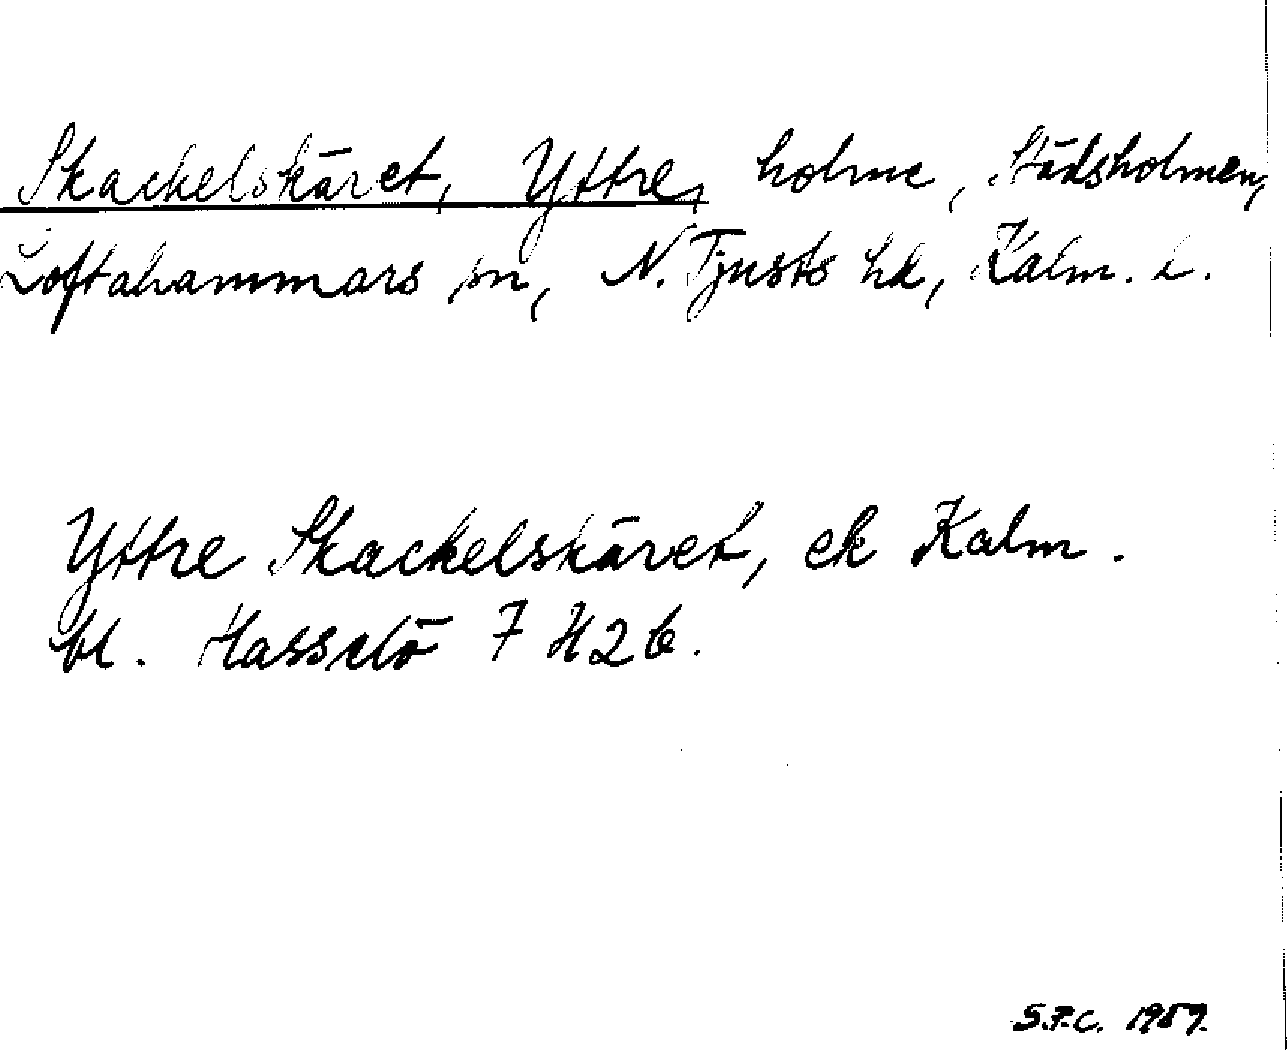 Skackelskäret, Yttre, holme, Städsholmen,
Loftahammars sn, N. Tjusts hd, Kalm. L.
Yttre Skackelskäret, ek Kalm.
bl. Hasselö 7 H2b.
S.F.C. 1959.